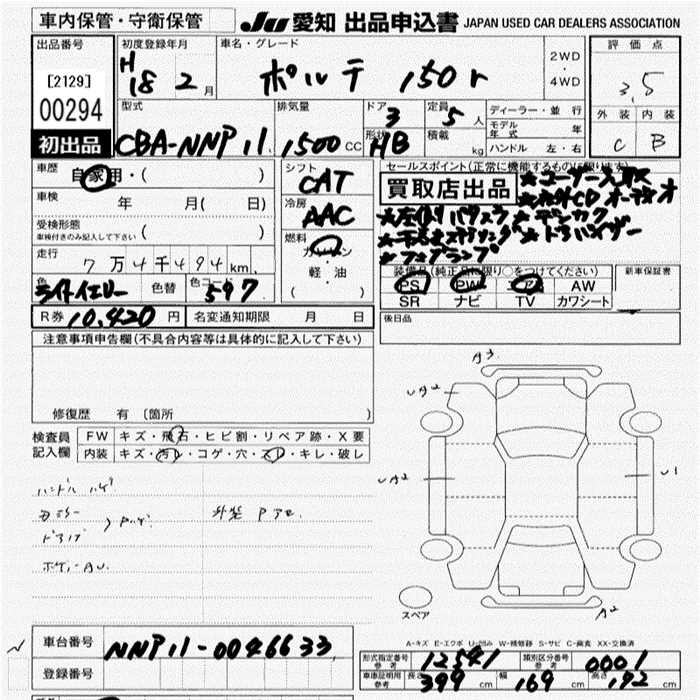 車内保管・守衛保管
JU 愛知 出品申込書 JAPAN USED CAR DEALERS ASSOCIATION
出品番号
[2129]
00294
初出品
初度登録年月
H 18 2 月
車名・グレード
ポルテ 150r
2WD
・
4WD
評価点
3.5
外装 内装
C B
型式
CBA-NNP11
排気量
1500 CC
ドア
3
形状
HB
定員
5 人
積載
kg
ディーラー・並行
モデル年式 年
ハンドル 左・右
車歴
自家用・( )
車検
年 月( 日)
受検形態
車検付きのみ記入して下さい ( )
走行
7万4千494km
色
ライトイエロー
色替
色コード
597
シフト
CAT
冷房
AAC
燃料
ガソリン
軽・油
( )
セールスポイント(正常に機能するものに限ります)
買取店出品
装備品(純正品に限り○をつけてください)
PS PW AW
SR ナビ TV カワシート
新車保証書
R券 10,420 円
名変通知期限 月 日
後日品
注意事項申告欄(不具合内容等は具体的に記入して下さい)
修復歴 有 〔箇所 〕
検査員記入欄
FW キズ・飛石・ヒビ割・リペア跡・X要
内装 キズ・汚レ・コゲ・穴・スレ・キレ・破レ
ハンドル ハゲ
A3
UA2
UA2
U1
A2
スペア
A-キズ E-エクボ U-凹み W-補修跡 S-サビ C-腐食 XX-交換済
車台番号
NNP11-0046633
登録番号
形式指定番号 参考 12541
類別区分番号 参考 0001
車庫証明用 参考 長さ 399 幅 169 高さ 172